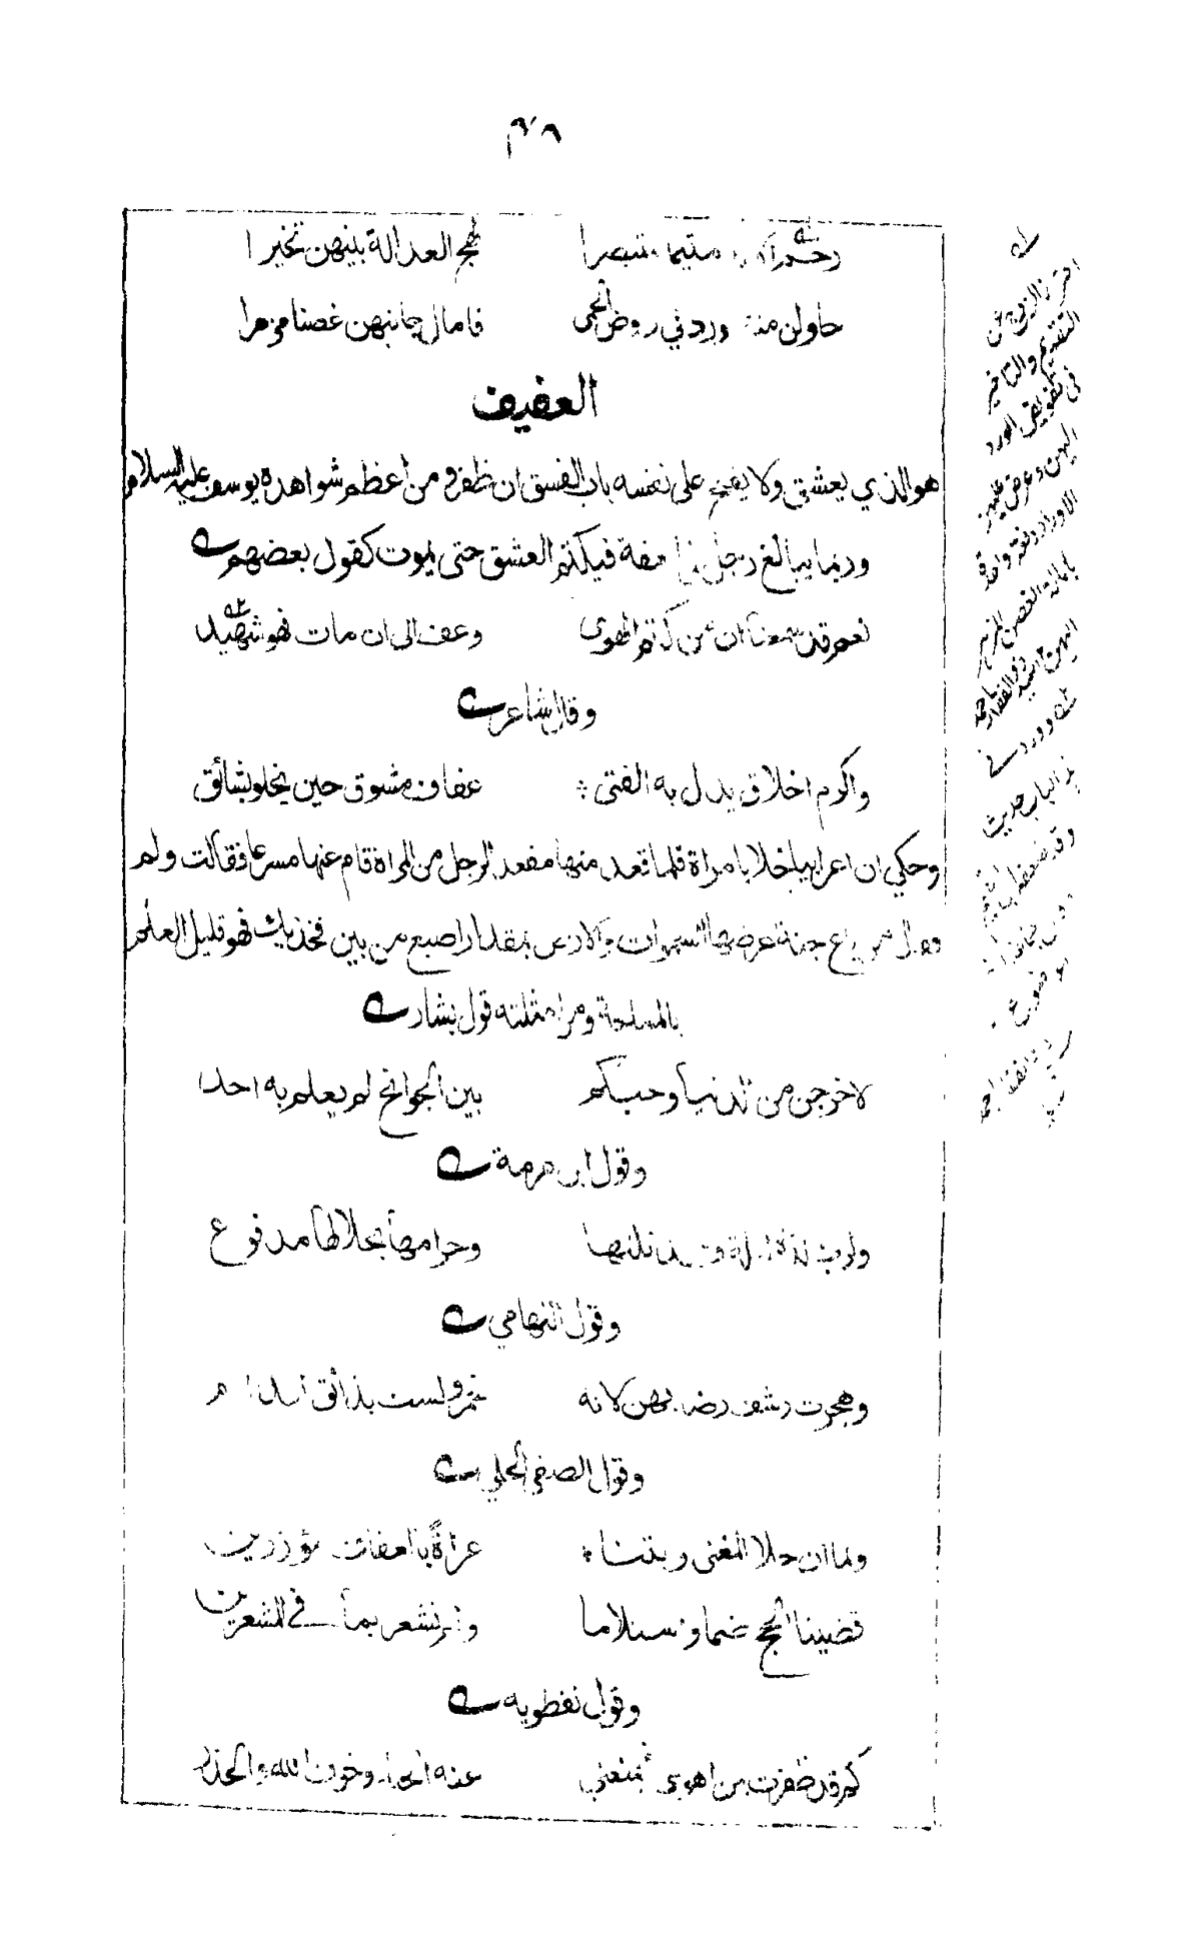 ٣٧٨
متيما متبصرا نهج العدالة بينهن تخيرا
حاولن منه ورد في روض الحمى فامال جانبهن غصنا مزهرا
العفيف
هو الذي يعشق ولا يفتح على نفسه باب الفسق ان ظفر ومن اعظم شواهده يوسف عليه السلام
وربما يبالغ رجل فيكتم العشق حتى يموت كقول بعضهم
نعم قد سمعنا ان من كاتم الهوى وعف الى ان مات فهو شهيد
وقال شاعر
واكرم اخلاق يدل به الفتى عفاف مشوق حين يخلو بشائق
وحكي ان اعرابيا خلا بامراة فلما قعد منها مقعد الرجل من المراة قام عنها مسرعا فقالت ولم
فقال من باع جنة عرضها السموات والارض بمقدار اصبع من بين فخذيك فهو قليل العلم
بالمساحة ومن امثلته قول بشار
لاخرجن من الدنيا وحبكم بين الجوانح لم يعلم به احدا
وقول ابن هرمة
ولرب لذة ليلة قد نلتها وحرامها بحلالها مدفوع
وقول التهامي
وهجرت رشف رضابهن لانه خمر ولست بذائق
وقول الصفي الحلي
ولما ان خلا المغنى وبتنا عراة بالعفاف مؤزرين
قضينا الحج ضما واستلاما ولم نشعر بما في المشعرين
وقول نفطويه
كم قد ظفرت بمن اهوى فيمنعني عنه الحياء وخوف الله والحذر
التقديم والتاخير
في تفويض الورد
اليهن وعرض عليهن
الاوراد دفعة واحدة
بامالة الغصن المزهر
اليهن سيد ذو الفقار احمد
وورد في
هذا الباب حديث